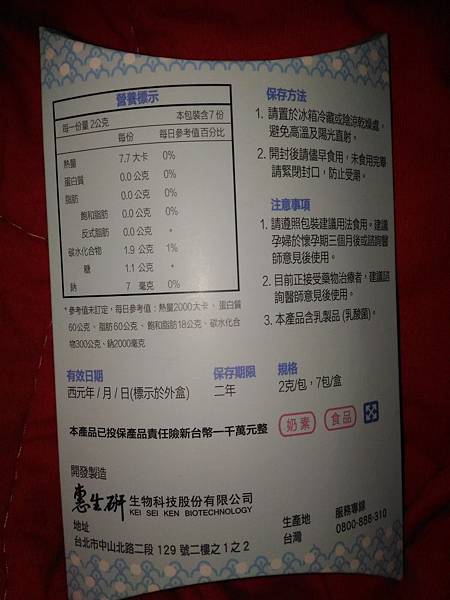 營養標示
每一份量2公克 本包裝含7份
每份 每日參考值百分比
熱量 7.7 大卡 0%
蛋白質 0.0 公克 0%
脂肪 0.0 公克 0%
飽和脂肪 0.0 公克 0%
反式脂肪 0.0 公克 *
碳水化合物 1.9 公克 1%
糖 1.1 公克 *
鈉 7 毫克 0%
*參考值未訂定，每日參考值：熱量2000大卡、蛋白質
60公克、脂肪60公克、飽和脂肪18公克、碳水化合
物300公克、鈉2000毫克
保存方法
1. 請置於冰箱冷藏或陰涼乾燥處，
避免高溫及陽光直射。
2. 開封後請儘早食用，未食用完畢
請緊閉封口，防止受潮。
注意事項
1. 請遵照包裝建議用法食用。建議
孕婦於懷孕期三個月後或諮詢醫
師意見後使用。
2. 目前正接受藥物治療者，建議諮
詢醫師意見後使用。
3. 本產品含乳製品 (乳酸菌)。
有效日期
西元年/月/日(標示於外盒)
保存期限
二年
規格
2克/包，7包/盒
本產品已投保產品責任險新台幣一千萬元整
奶素 食品
開發製造
惠生研 生物科技股份有限公司
KEI SEI KEN BIOTECHNOLOGY
地址
台北市中山北路二段129號二樓之1之2
生產地
台灣
服務專線
0800-888-310